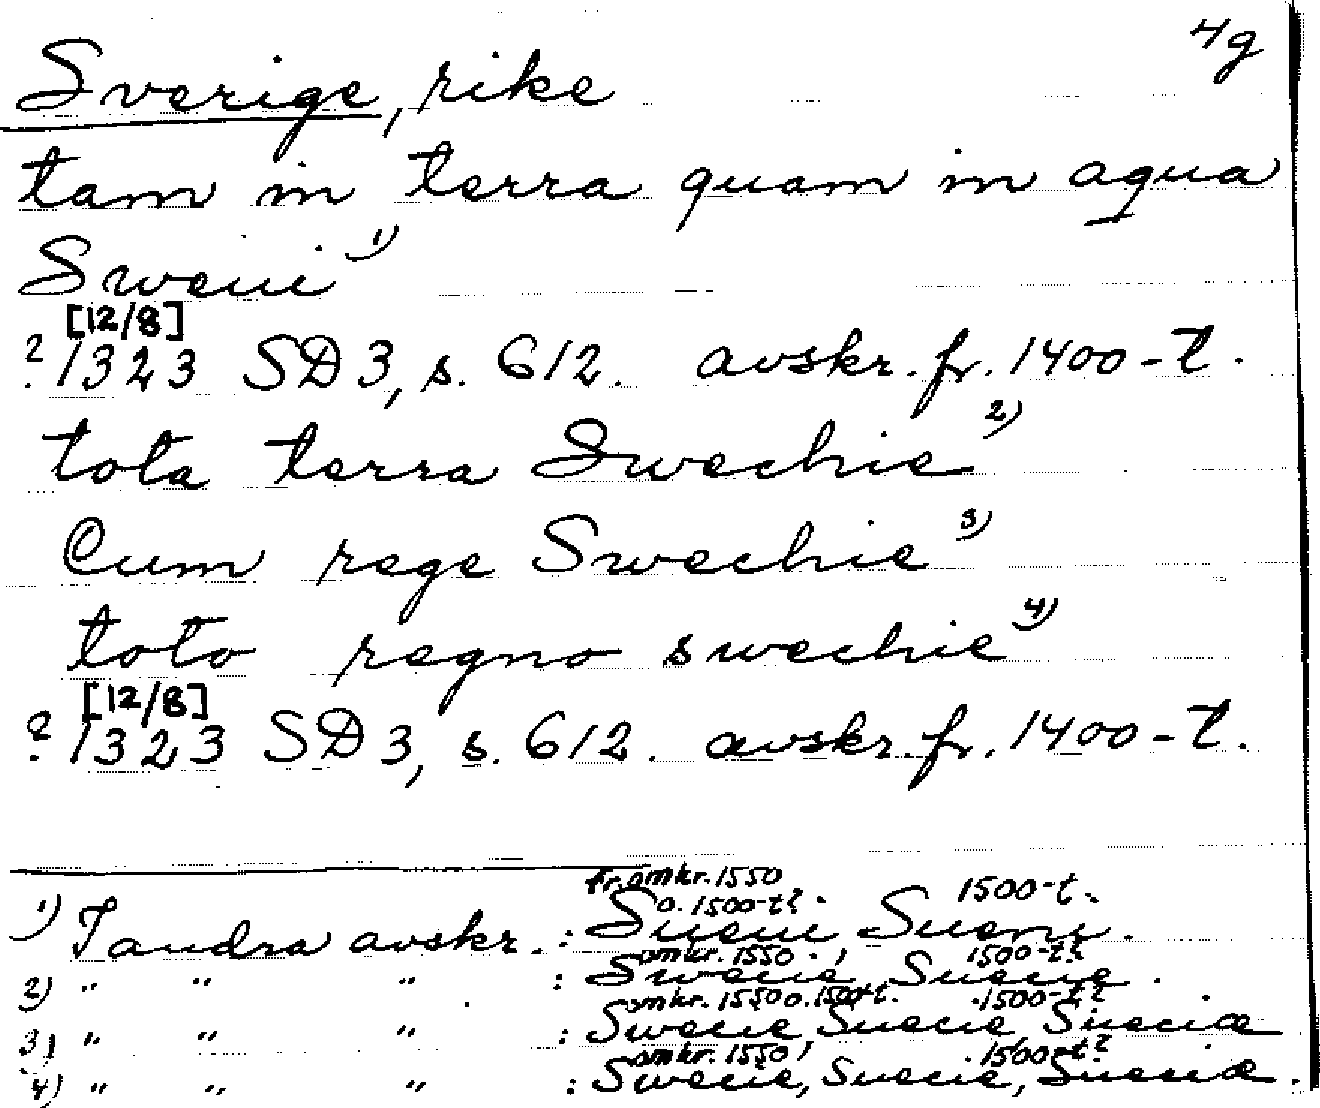 4g
Sverige, rike
tam in terra quam in aqua
Sweui 1)
[12/8]
? 1323 SD 3, s. 612. avskr. fr. 1400-t.
tota terra Swechie 2)
Cum rege Swechie 3)
toto regno swechie 4)
[12/8]
? 1323 SD 3, s. 612. avskr. fr. 1400-t.
fr. omkr. 1550
o. 1500-t? 1500-t.
1) I andra avskr. :
omkr. 1550 1500-t?
2) " " " : Swecie, Suecie.
omkr. 1550 o. 1500-t. 1500-t?
3) " " " : Swecie Suecie Sueciæ
omkr. 1550, 1500-t?
4) " " " : Swecie, Suecie, Sueciæ.